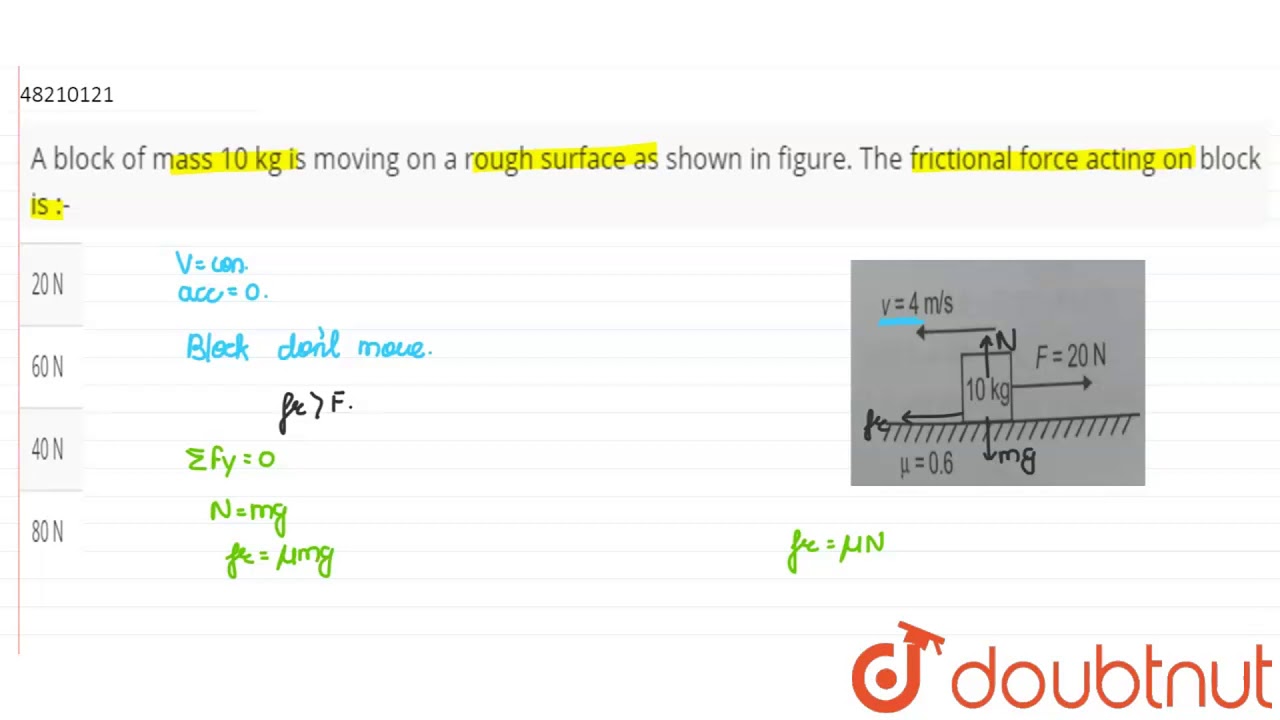 48210121
A block of mass 10 kg is moving on a rough surface as shown in figure. The frictional force acting on block
is :-
20 N
60 N
40 N
80 N
V = con.
acc = 0.
Block don't move.
fr > F.
Σfy = 0
N = mg
fr = μmg
v = 4 m/s
N
F = 20 N
10 kg
fr
μ = 0.6
mg
fr = μN
doubtnut